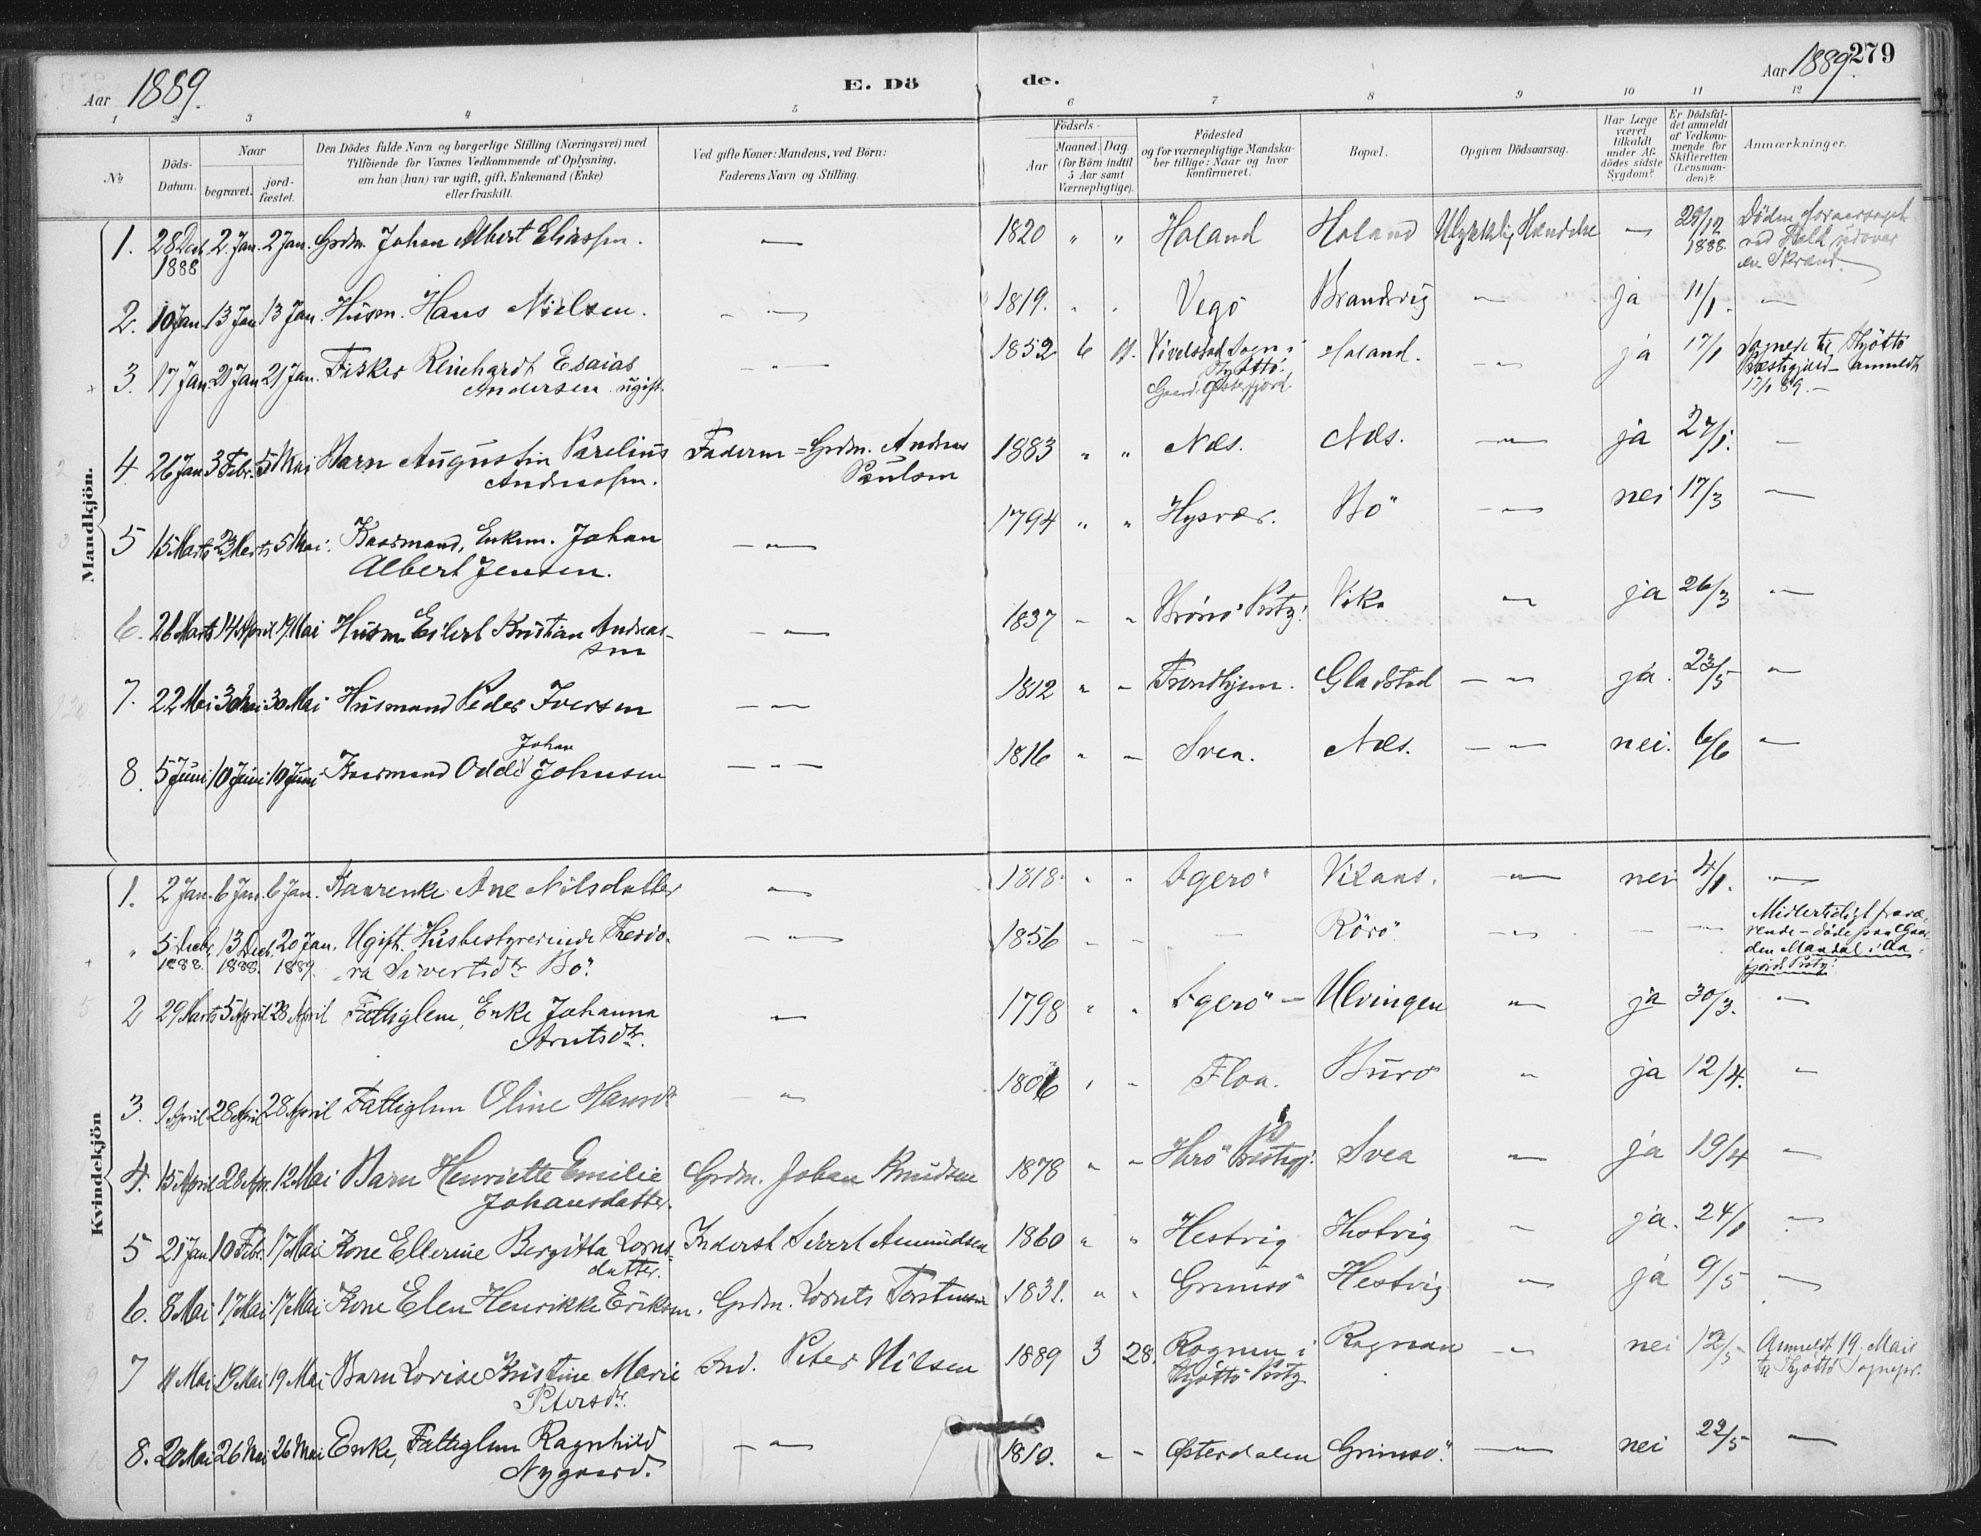 Aar 1889. E. Dö de. Aar 1889. 279
1 2 3 4 5 6 7 8 9 10 11 12
No
Döds-Datum.
Naar
begravet.
jord-fæstet.
Den Dödes fulde Navn og borgerlige Stilling (Næringsvei) med
Tilföiende for Voxnes Vedkommende af Oplysning,
om han (hun) var ugift, gift, Enkemand (Enke)
eller fraskilt.
Ved gifte Koner: Mandens, ved Börn:
Faderens Navn og Stilling.
Födsels-
Aar
Maaned. Dag.
(for Börn indtil
5 Aar samt
Værnepligtige).
Födested
og for værnepligtige Mandska-
ber tillige: Naar og hvor
konfirmeret.
Bopæl.
Opgiven Dödsaarsag.
Har Læge
været
tilkaldt
under Af-
dödes sidste
Sygdom?
Er Dödsfal-
det anmeldt
af Vedkom-
mende for
Skifteretten
(Lensman-
den)?
Anmærkninger.
Mandkjön.
1. 28 Dec. 1888 2 Jan. 2 Jan. Grdm. Johan Albert Eliassen. — 1820 " " Holand Holand Ulykkelig Hændelse — 29/12 1888. Døden foraarsaget
ved Fald udover
en Skrænt.
2. 10 Jan. 13 Jan. 13 Jan. Husm. Hans Nielsen. — 1819. " " Vegö Brandsvig — ja 11/1. —
3. 17 Jan. 21 Jan. 21 Jan. Fisker Reinhardt Esaias
Andersen ugift. — 1852 6 11. Vivelstad Sogn i
Tjöttö.
Gaard. Østerfjord. Holand. — ja 17/1 Sognede til Tjöttö
Præstegjeld – anmeldt
17/1 89. —
4. 26 Jan. 3 Febr. 5 Mai Barn Augustin Parelius
Andreassen. Faderen = Grdm. Andreas
Paulsen 1883 " " Næs. Næs. — ja 27/1. —
5 15 Marts 23 Marts 5 Mai. Kaarmand, Enkem. Johan
Albert Jensen. — 1794 " " Hysvær. Bö — nei 17/3 —
6. 26 Marts 14 April 19 Mai Husm Eilert Kristian Andreas-
sen — 1837 " " Brönö Pstgj. Vika — ja 26/3 —
7. 22 Mai 30 Mai 30 Mai Husmand Peder Iversen — 1812 " " Trondhjem. Gladstad — ja. 23/5 —
8. 5 Juni 10 Juni 10 Juni Kaarmand Oddi Johan Johnsen — 1816 " " Svea. Næs. — nei. 6/6 —
Kvindekjön
1. 2 Jan. 6 Jan. 6 Jan. Kaarenke Ane Nilsdatter — 1818. " " Igerö Vikans. — nei 4/1. —
" 5 Decbr. 1888. 13 Decb. 1888. 20 Jan. 1889. Ugift. Husbestyrerinde Theodo-
ra Sivertsdtr. Bö. — 1856 — — — Rörö — — — Midlertidigt fravæ-
rende – døde paa Gaar-
den Mandal i Aa-
fjords Pstgj.
2 29 Marts 5 April 28 April Fattiglem, Enke Johanna
Arntsdtr. — 1798 " " Igerö — Ulvingen — ja 30/3. —
3. 9 April 28 April 28 April Fattiglem Oline Hansdtr. — 1806 " " Floa. Burö — ja 12/4. —
4. 15 April 28 Apr. 12 Mai Barn Henriette Emilie
Johansdatter. Grdm. Johan Knudsen 1878 " " Herö Præstegj. Svea — ja 19/4 —
5 21 Jan. 10 Febr. 17 Mai Kone Ellerine Bergitta Lornts-
datter. Inderst Sivert Amundsen 1860 " " Hestvig Hestvig — ja. 24/1 —
6. 8 Mai 17 Mai 17 Mai Kone Elen Henrikke Eriksen. Grdm. Lornts Torstensen 1831. " " Grimsö Hestvig — ja 9/5 —
7 11 Mai 19 Mai 19 Mai Barn Lovise Kristine Marie
Petersdtr. Ind. Peter Nilsen 1889 3 28. Rognan i
Tjöttö Pstgj. Rognan — nei 12/5 Anmeldt 19. Mai
til Tjöttö Sognepr.
8. 20 Mai 26 Mai 26 Mai Enke, Fattiglem Ragnhild
Nygaard. — 1810. " " Østerdalen Grimsö. — nei 22/5 —